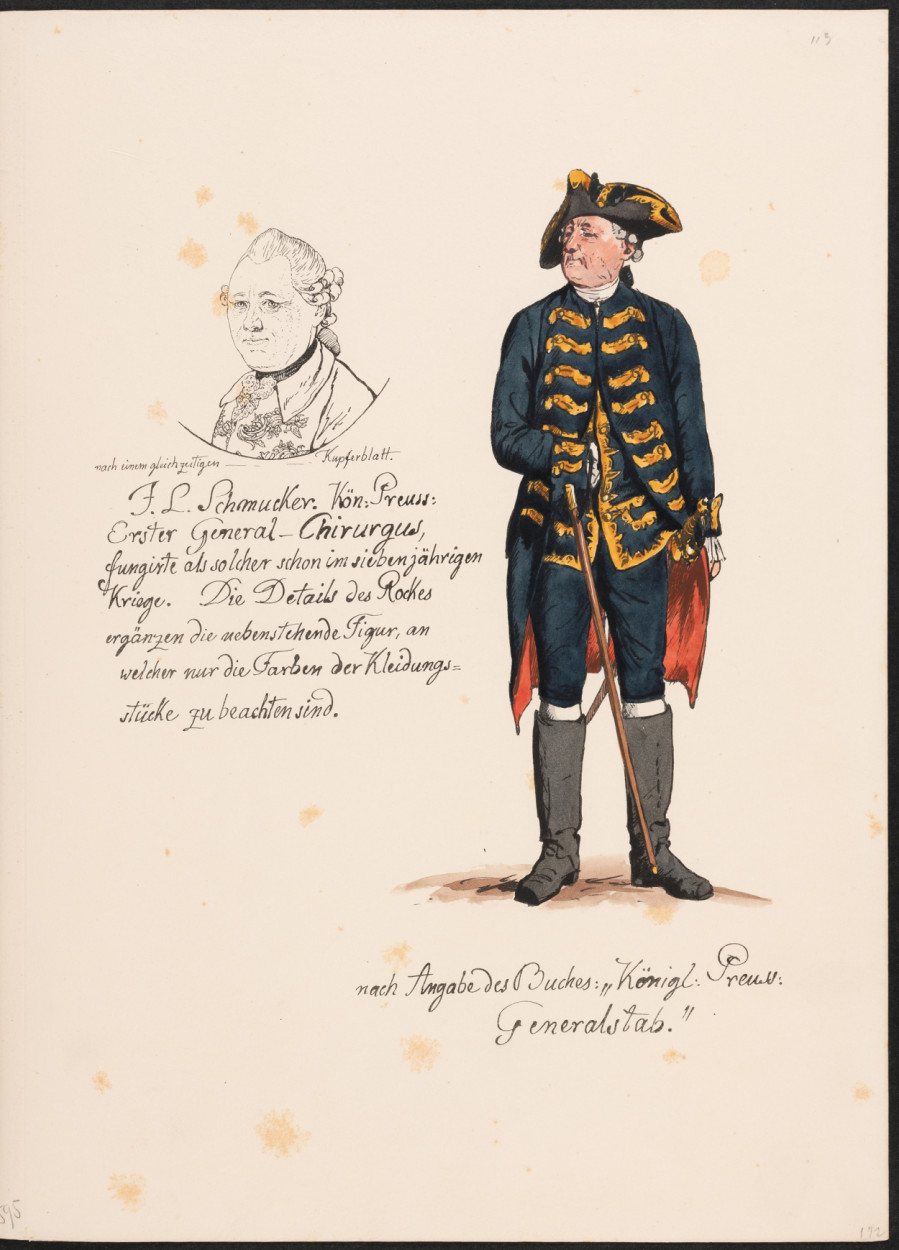 113
nach einem gleichzeitigen Kupferblatt
J. L. Schmucker. Kön: Preuss:
Erster General-Chirurgus,
fungirte als solcher schon im siebenjährigen
Kriege. Die Details des Rockes
ergänzen die nebenstehende Figur, an
welcher nur die Farben der Kleidungs=
stücke zu beachten sind.
nach Angabe des Buches: „Königl: Preuss:
Generalstab."
172